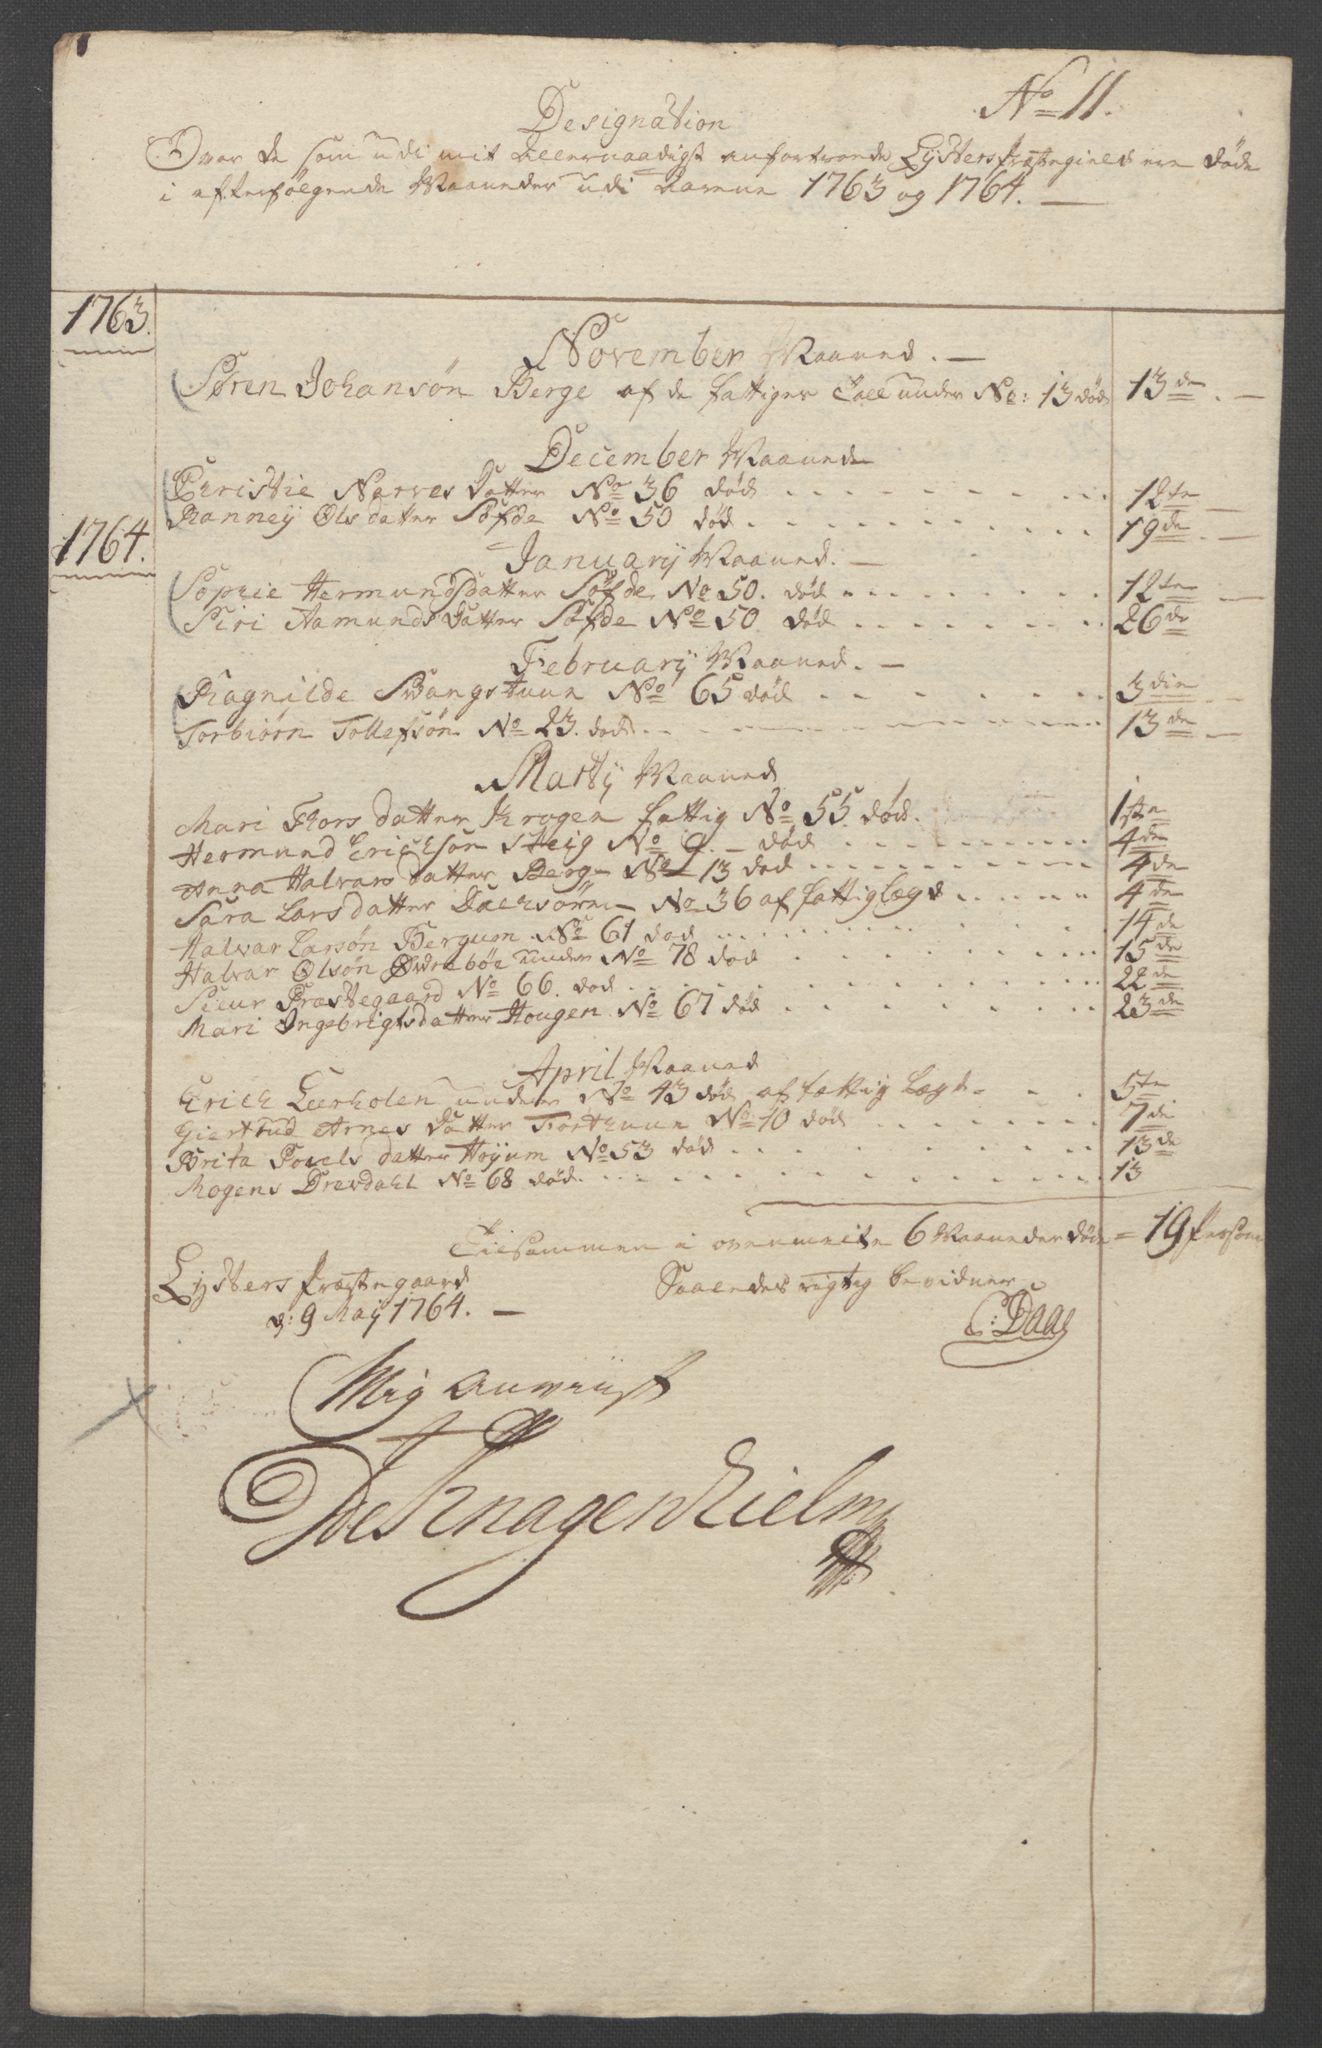 No 11.
Designation
Over de som udi mit allernaadigst anfortroede Lysters Præstegield ere døde
i efterfølgende Maaneder udi Aarene 1763 og 1764.
1763.
November Maaned.
Søren Johansøn Berge af de fattiges Tall under No: 13 død 13de
December Maaned
Christie Narves Datter No 36 død 12te
Ranney Ols datter Søfde No 50 død 19de
1764.
January Maaned.
Sophie Hermundsdatter Søfde No 50. død 12te
Siri Aamunds Datter Søfde No 50 død 26de
February Maaned.
Ragnilde Svangstuun No 65 død 3die
Torbiørn Tollefsøn No 23. død 13de
Marty Maaned
Mari Thors datter Krogen fattig No 55 død. 1ste
Hermund Erichsøn Steig No 9. død 4de
Anna Halvars datter Berge No 13 død 4de
Sara Lars datter No 36 af fattig Lægd 4de
Halvar Larsøn Bergum No 61 død 14de
Halvar Olsøn Øvrebøe under No 78 død 15de
Siur Præstegaard No 66. død 22de
Mari Ingebrigtsdatter Hougen No 67 død 23de
April Maaned
Erich Leerholen under No 43 død af fattig Lægd 5te
Giertrud Arnes Datter Forthuun No 10 død 7de
Brita Povels datter Høyum No 53 død 13de
Mogens Drevdahl No 68 død. 13
Tilsammen i ovenmelte 6 Maaneder døde = 19 Persone
Lysters Præstegaard
d: 9 Maij 1764.
Saaledes rigtig bevidner
C: Daae
Mig anviist
de Knagenhielm